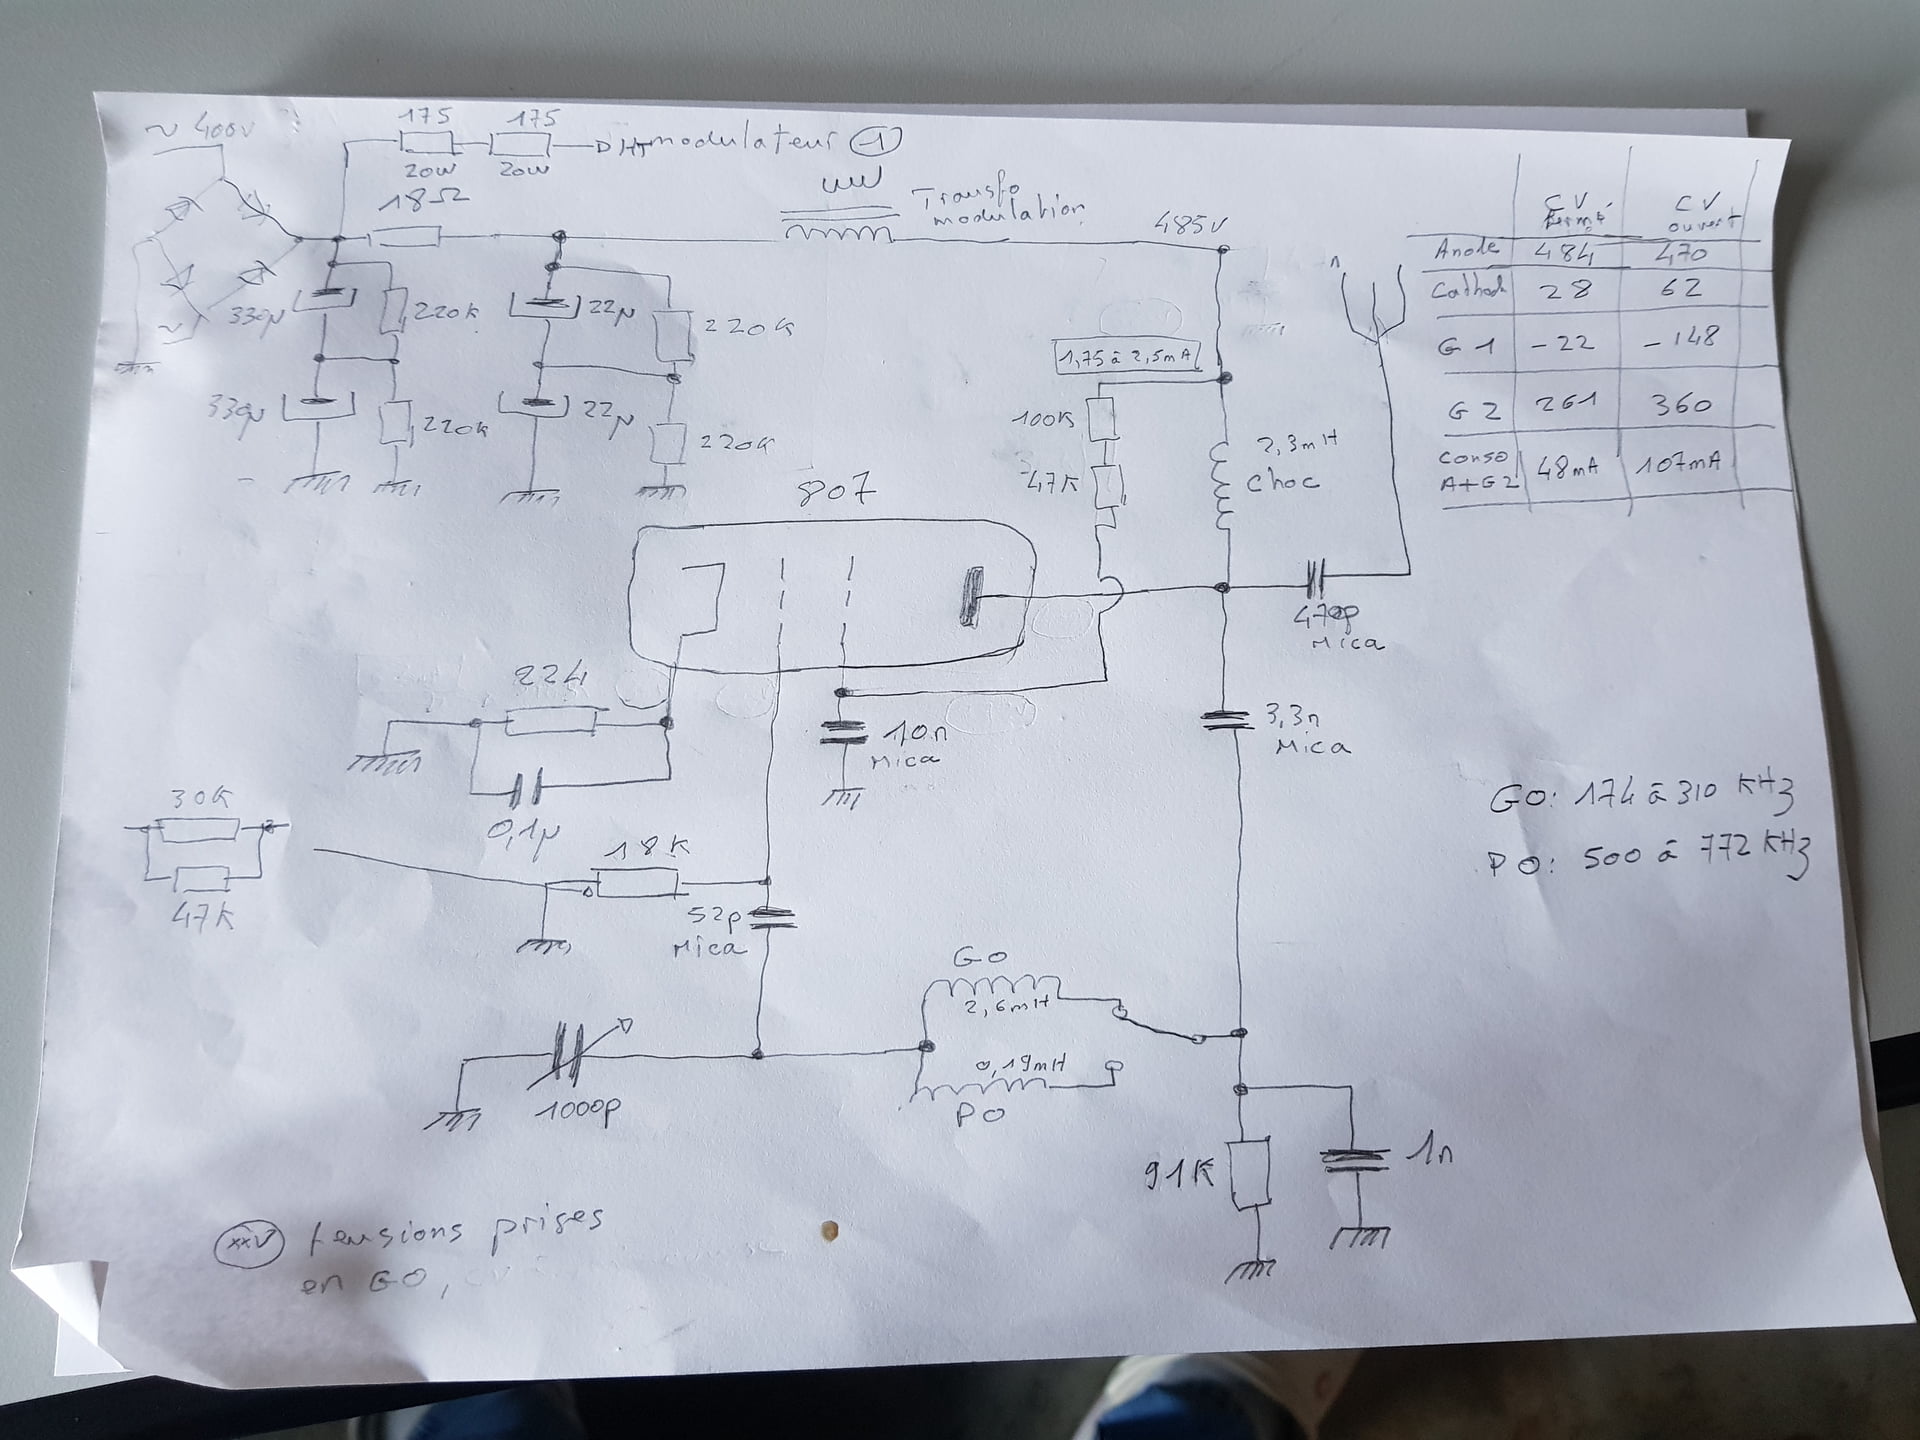 ~ 400V
175
175
20W
20W
HT modulateur 1
18Ω
Transfo
modulation
485V
330µ
220K
22µ
220K
330µ
220K
22µ
220K
1,75 à 2,5mA
100K
47K
2,3mH
choc
CV
fermé
CV
ouvert
Anode 484 470
Cathode 28 62
G1 -22 -148
G2 261 360
Conso
A+G2 48mA 107mA
807
470p
Mica
224
0,1µ
10n
Mica
3,3n
Mica
30K
47K
18K
52p
Mica
GO: 174 à 310 KHz
PO: 500 à 772 KHz
GO
2,6mH
0,19mH
PO
1000p
91K
1n
xxV tensions prises
en GO,